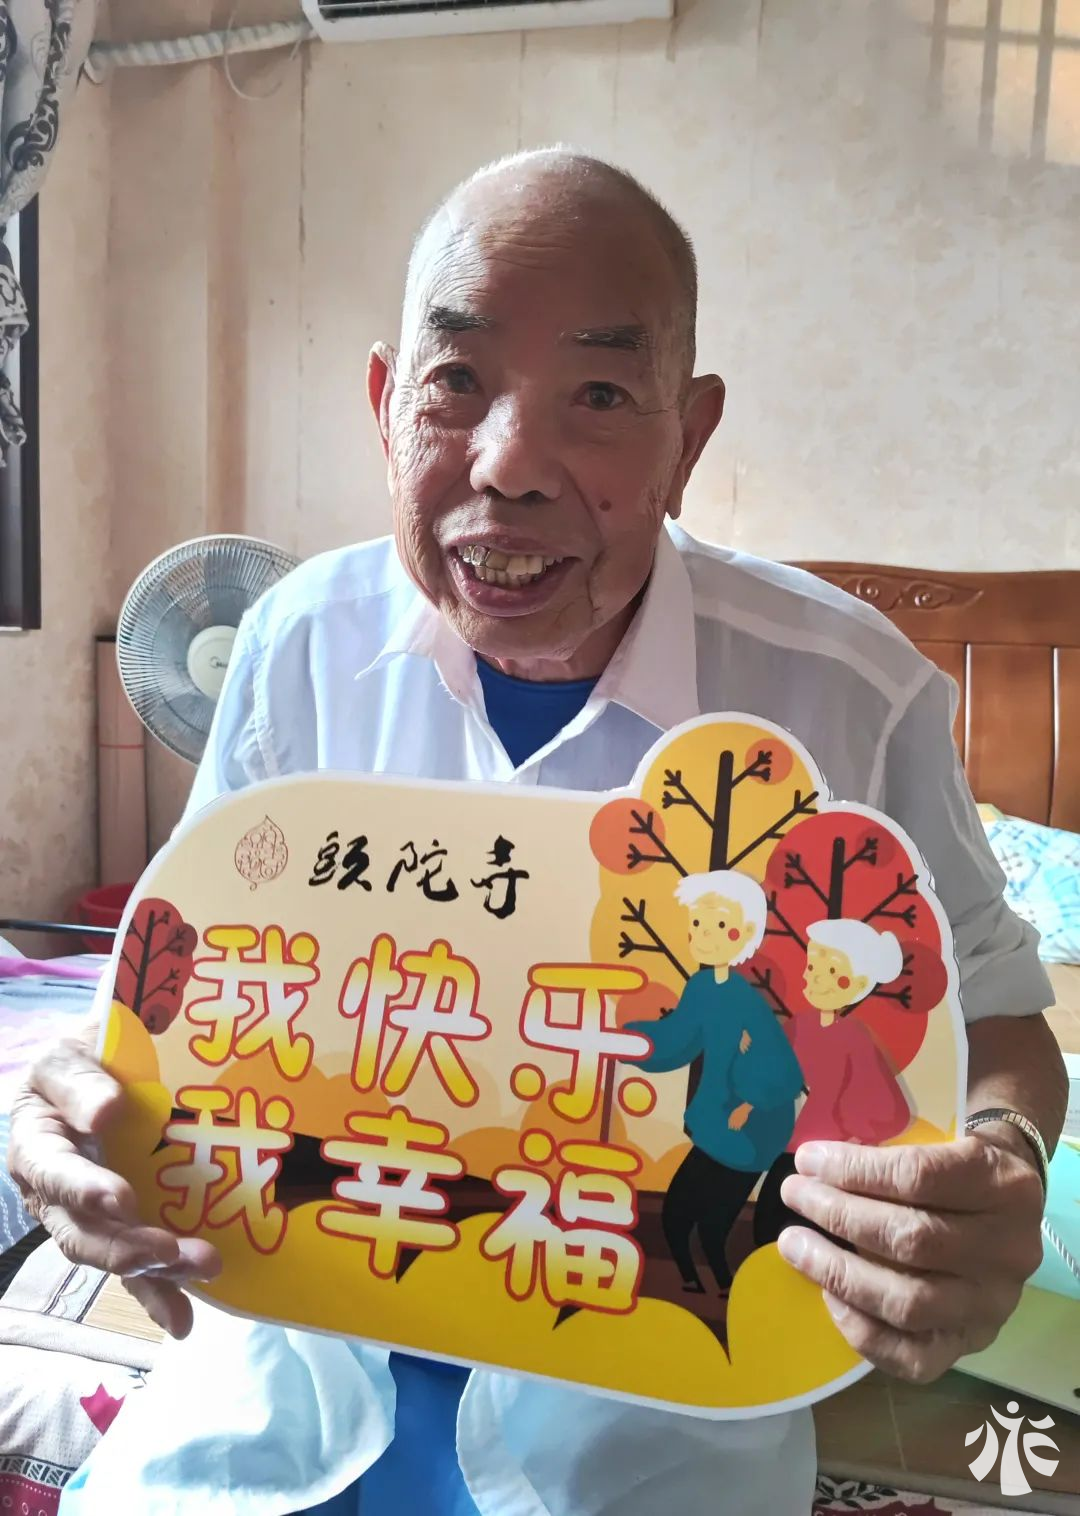 頭陀寺
我快乐
我幸福